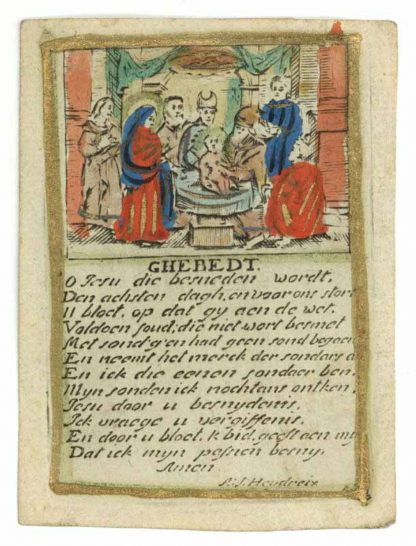 GHEBEDT.
O Jesu die besneden wordt,
Den achsten dagh, en voor ons stort
U bloet, op dat gy aen de wet,
Voldoen soud; die niet wort besmet
Met sond' g'en had geen sond begaen
En neemt het merck der sondars a
En ick die eenen sondaer ben,
Myn sonden ick nochtans ontken,
Jesu door u besnydenis,
Ick vraege u vergiffenis,
En door u bloet, k'bid, geeft aen my
Dat ick myn passien besny.
Amen